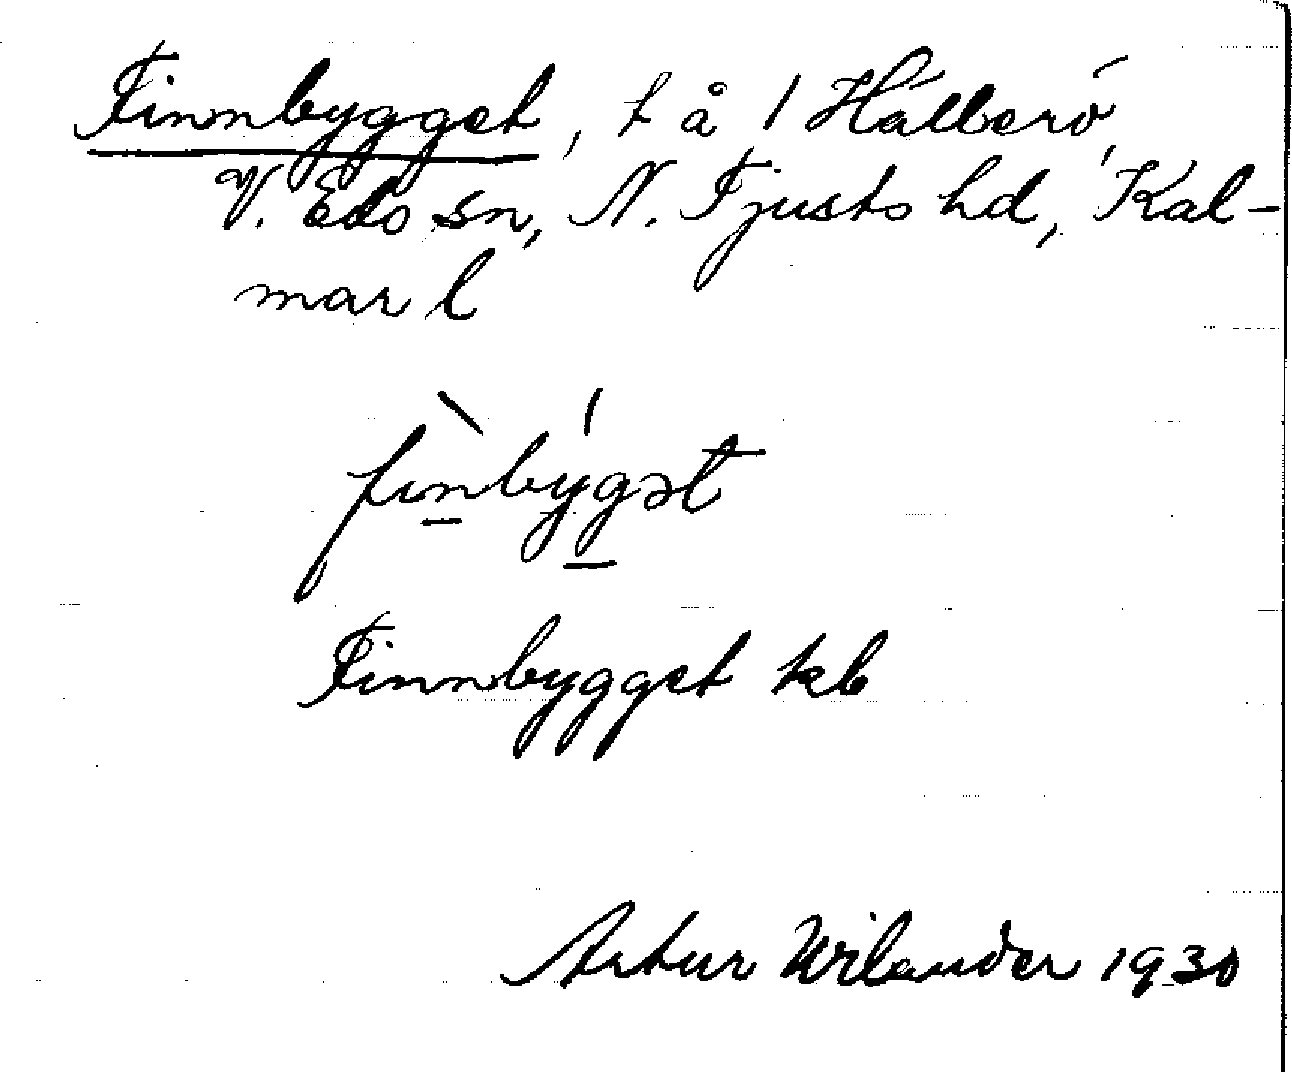 Finnbygget, t å / Hällerö,
V. Eds sn, N. Tjusts hd, Kal-
mar l
fìnbýgət
Finnbygget kb
Artur Wilander 1930